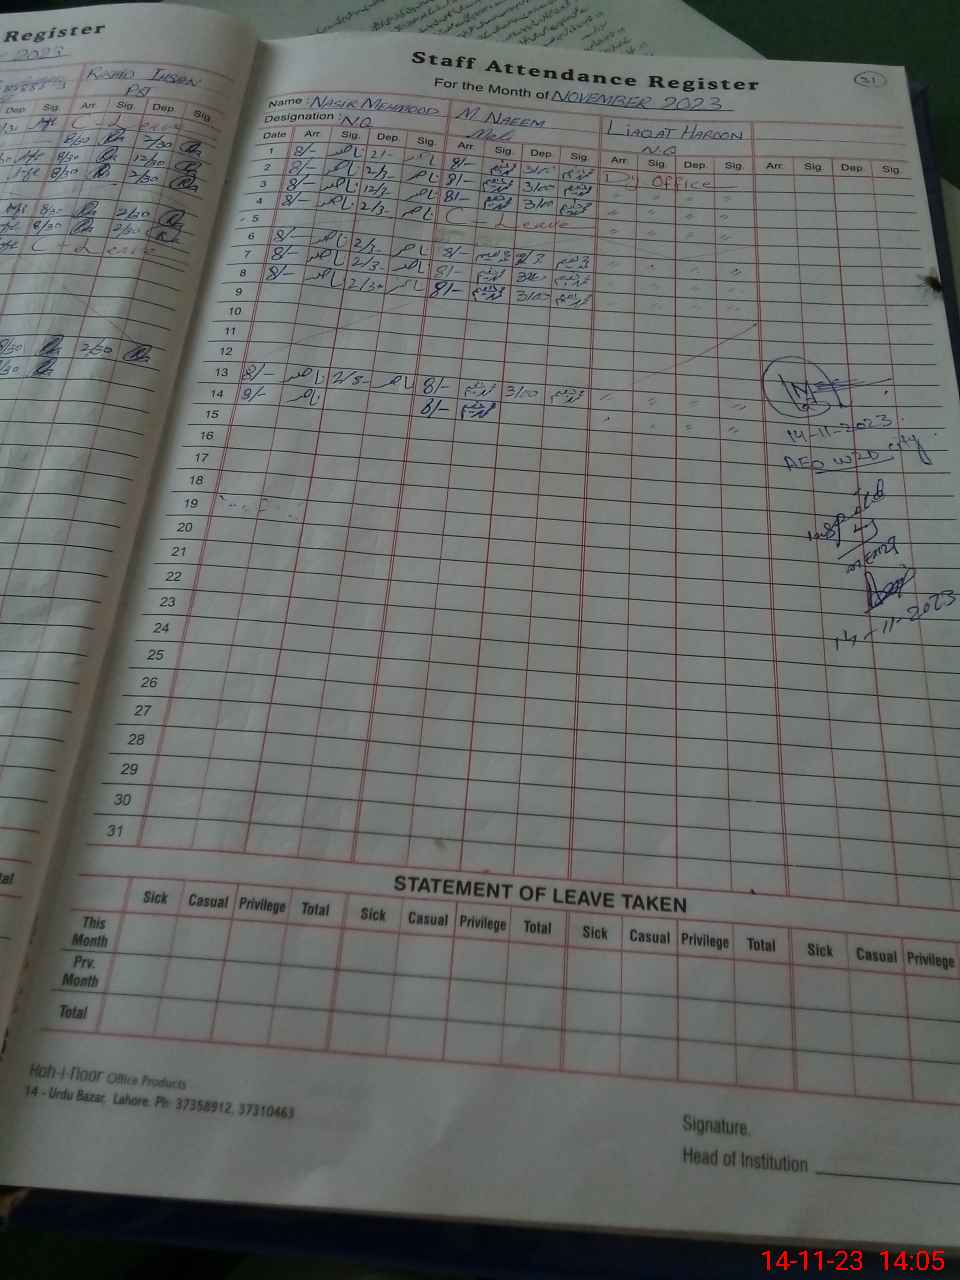 Register
2023
RAHID
PST
Dep. Sig. Arr. Sig. Dep. Sig.
C - Leave
8/30 2/30
8/30 12/30
8/30 2/30
8/30 2/30
8/30 2/30
C - Leave
8/30 2/30
8/30
Staff Attendance Register
31
For the Month of NOVEMBER 2023
Name : NASIR MEHMOOD M. NAEEM LIAQAT HAROON
Designation : N.Q Mali N.Q
Date Arr. Sig. Dep. Sig. Arr. Sig. Dep. Sig. Arr. Sig. Dep. Sig. Arr. Sig. Dep. Sig.
1 8/- ناصر 2/- ناصر 8/- 3/00 Dy Office
2 8/- ناصر 2/3- ناصر 8/- 3/00 " " "
3 8/- ناصر 12/3- ناصر 8/- 3/00 " " "
4 8/- ناصر 2/3- ناصر C - Leave " " "
5
6 8/- ناصر 2/3- ناصر 8/- 2/3 " " "
7 8/- ناصر 2/3- ناصر 8/- 3/00 " " "
8 8/- ناصر 2/30 ناصر 8/- 3/00 " " "
9
10
11
12
13 8/- ناصر 2/5- ناصر 8/- 3/00 " " "
14 8/- ناصر 8/- " " "
15
16
17
18
19
20
21
22
23
24
25
26
27
28
29
30
31
14-11-2023
AEO W2D City
14-11-2023
STATEMENT OF LEAVE TAKEN
Sick Casual Privilege Total Sick Casual Privilege Total Sick Casual Privilege Total Sick Casual Privilege
This Month
Prv. Month
Total
Koh-i-noor Office Products
14 - Urdu Bazar, Lahore. Ph: 37358912, 37310463
Signature.
Head of Institution
14-11-23 14:05